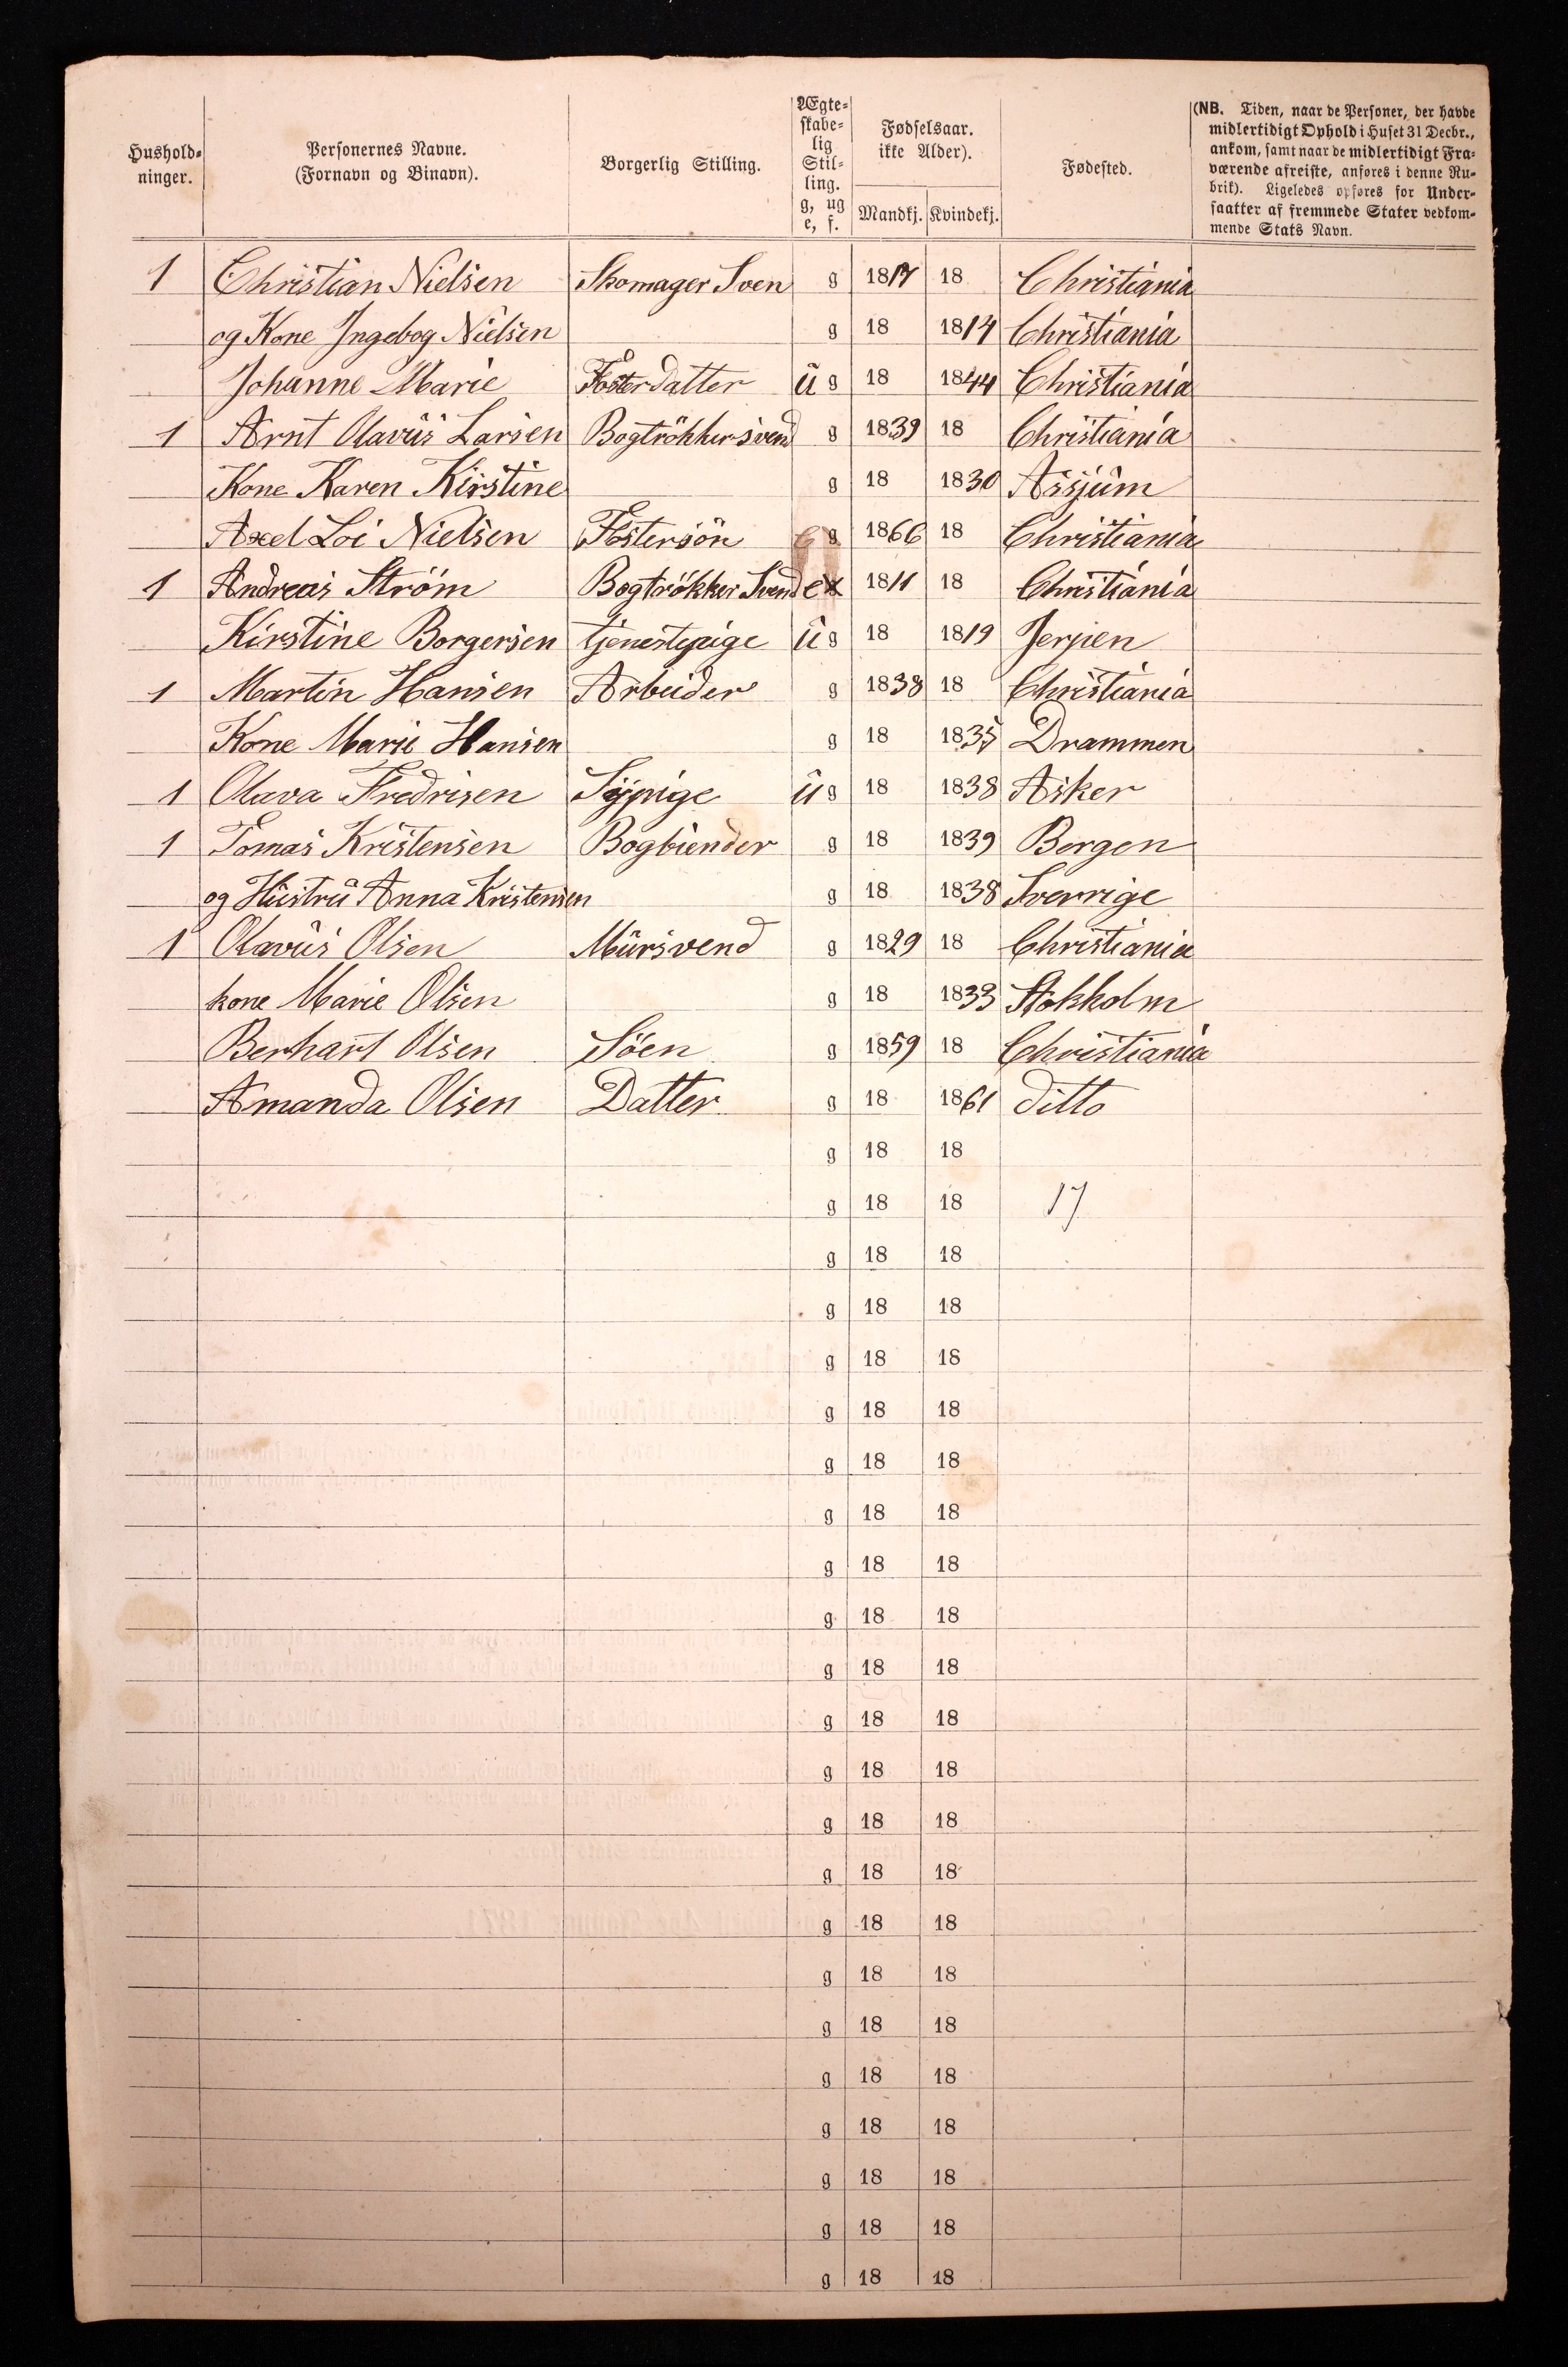 Hushold-
ninger.
Personernes Navne.
(Fornavn og Binavn).
Borgerlig Stilling.
Ægte-
skabe-
lig
Stil-
ling.
g, ug
e, f.
Fødselsaar.
ikke Alder).
Mandkj. Kvindekj.
Fødested.
(NB. Tiden, naar de Personer, der havde
midlertidigt Ophold i Huset 31 Decbr.,
ankom, samt naar de midlertidigt Fra-
værende afreiste, anføres i denne Ru-
brik). Ligeledes opføres for Under-
saatter af fremmede Stater vedkom-
mende Stats Navn.
1 Christian Nielsen Skomager Sven g 1817 18 Christiania
og Kone Ingebog Nielsen g 18 1814 Christiania
Johanne Marie Fosterdatter ug 18 1844 Christiania
1 Arnt Olavus Larsen Bogtrökkersvend g 1839 18 Christiania
Kone Karen Kirstine g 18 1830 Assjum
Axel Loi Nielsen Fostersön g 1866 18 Christiania
1 Andreas Ström Bogtrökker Svend e 1811 18 Christiania
Kirstine Borgersen tjenestepige ug 18 1819 Jerpen
1 Martin Hansen Arbeider g 1838 18 Christiania
Kone Marie Hansen g 18 1835 Drammen
1 Olava Fredrisen Sypige ug 18 1838 Asker
1 Tomas Kristensen Bogbiender g 18 1839 Bergen
og Hustru Anna Kristensen g 18 1838 Sverrige
1 Olavus Olsen Mursvend g 1829 18 Christiania
kone Marie Olsen g 18 1833 Stokholm
Berhart Olsen Söen g 1859 18 Christiania
Amanda Olsen Datter g 18 1861 ditto
g 18 18
g 18 18 17
g 18 18
g 18 18
g 18 18
g 18 18
g 18 18
g 18 18
g 18 18
g 18 18
g 18 18
g 18 18
g 18 18
g 18 18
g 18 18
g 18 18
g 18 18
g 18 18
g 18 18
g 18 18
g 18 18
g 18 18
g 18 18